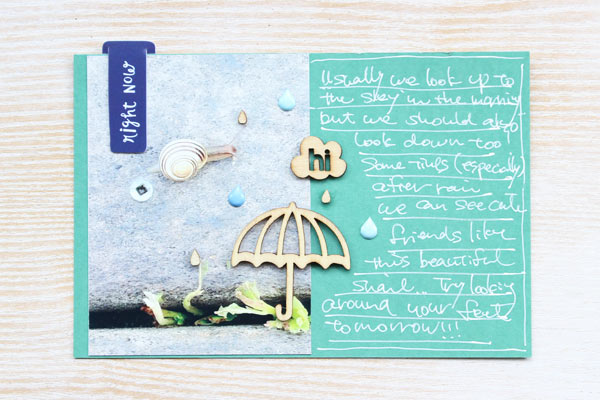 right now
hi
Usually we look up to
the sky in the morning
but we should also
look down too
Some tings (especially)
after rain
we can see cute
friends like
this beautiful
snail.. Try looking
around your feet
tomorrow!!!